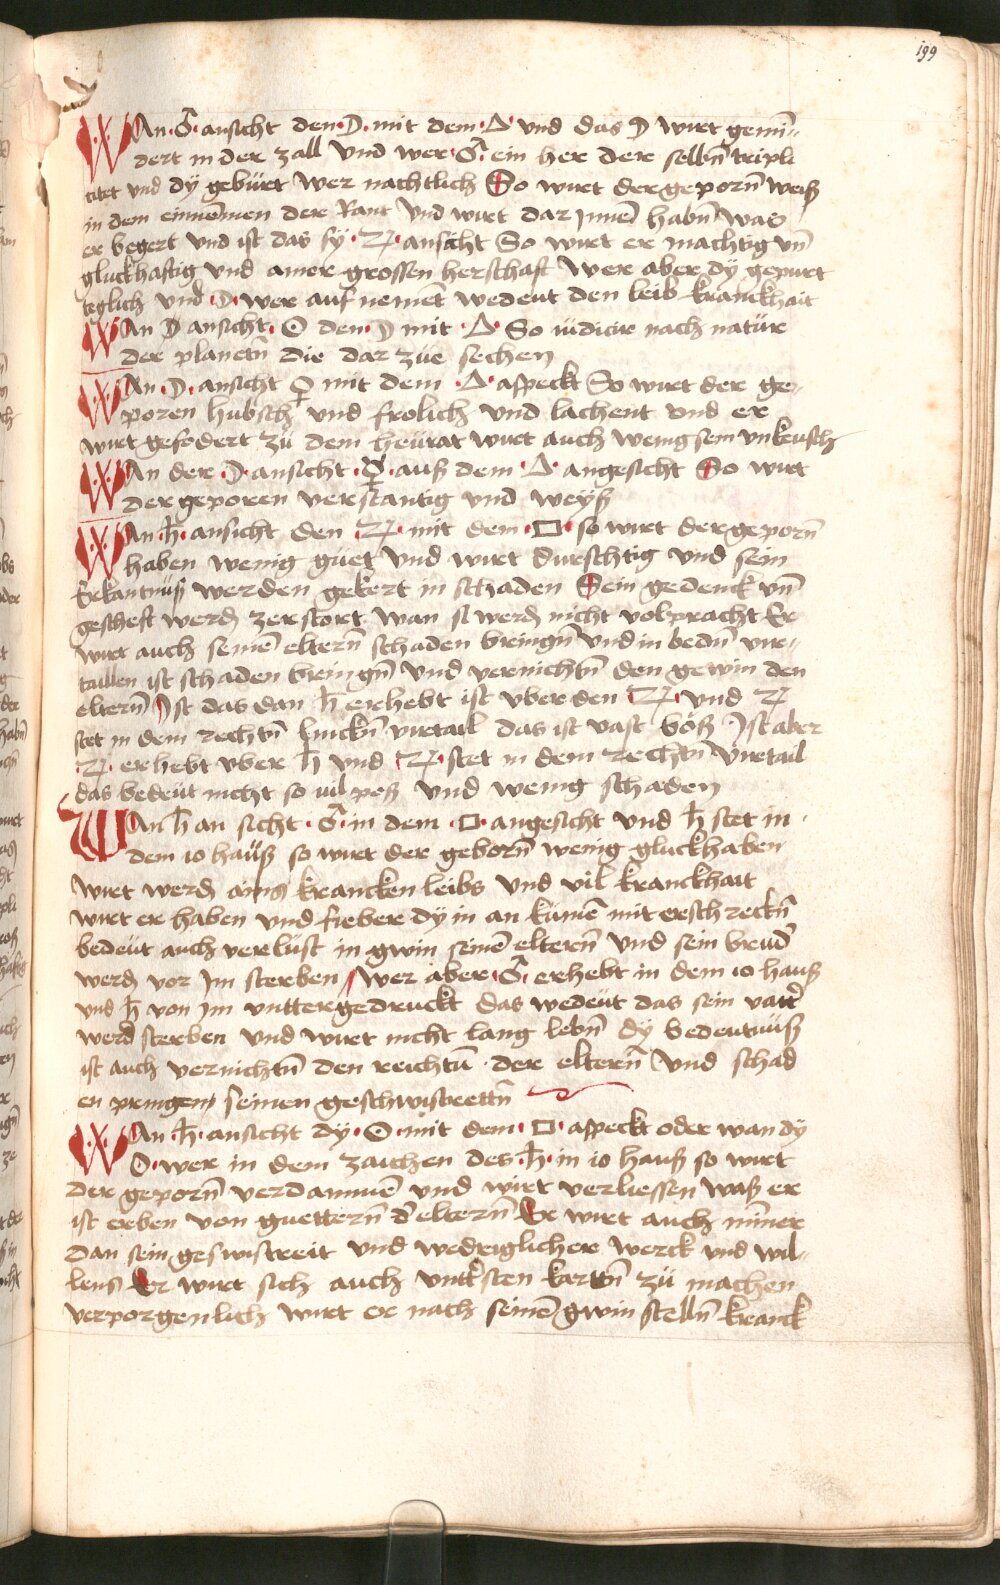 199
WAn · ♂ · ansicht den · ☽ · mit dem · △ · vnd das ☽ wirt gemin̄-
dert in der zall Vnd wer · ♂ · ein her der selbn̄ tripli
citet vnd dÿ gebürt wer nachtlich So wirt der geporn̄ weiß
in dem einnemen der Rant Vnd wirt dar Jnnen̄ habn̄ was
er begert vnd ist das sÿ · ♃ · ansicht So wirt er machtig vn̄
gluckhafftig Vnd ainer grossen herschaft Wer aber dÿ gepurt
teglich Vnd · ☽ · wer auf nemēt wedeut den leib kranckhait
WAn ☽ ansicht · ☉ den · ☽ mit · △ · So iudicir nach natür
der planetn̄ die dar züe sechen
WAn · ☽ · ansicht ♀ mit dem · △ · aspeckt So wirt der ge-
poren hubsch vnd frolich Vnd lachent vnd er
wirt gefodert zü dem heürat wirt auch wenig sein vnkeusch
WAn der · ☽ · ansicht · ☿ · auß dem · △ · angesicht So wirt
der geporen verstantig vnd weÿß
WAn · ♄ · ansicht den · ♃ · mit dem · □ · so wirt der geporn̄
haben wenig guet Vnd wirt durschtig vnd sein
Erkantnüß werden gekert in schaden Sein gedenck vn̄
gescheft werd zerstort wan si werd nicht volpracht Er
wirt auch seinē elternn̄ schaden bringn̄ Vnd in bedn̄ vir-
taillen ist schaden bringn̄ Vnd vernichtn̄ den gewin den
elternn̄ Jst das dan ♄ erhebt ist vber den ♃ · vnd ♃
stet in dem rechtn̄ linckn̄ virtail das ist vast böß Jst aber
· ♃ · erhebt vber ♄ vnd · ♃ · stet in dem rechtn̄ virtail
das bedeüt nicht so uil peß vnd wenig schaden
WAn ♄ an sicht · ♂ · in dem · □ · angesicht vnd ♄ stet in ·
dem 10 hauß so wirt der geborn̄ wenig gluck haben
Wirt werd ains krancken leibs Vnd vil kranckhait
wirt er haben vnd fieber dÿ in an kümē mit erschreckn̄
bedeüt auch verlüst in gwin seinē elternn̄ vnd sein brud
werd vor Jm sterben wer aber · ♂ · erhebt in dem 10 hauß
vnd ♄ von Jm vnttergedruckt das wedeüt das sein vatt
werd sterben Vnd wirt nicht lang lebn̄ dÿ bedeutnüß
ist auch vernichtn̄ den reichtū · der elternn̄ Vnd schad
en pringen seinen geschwistrettn̄
WAn · ♄ · ansicht dÿ · ☉ · mit dem · □ · aspeckt oder wan dÿ
☉ · wer in dem zaichen des · ♄ · in 10 hauß so wirt
der geporn̄ verdammē vnd wirt verliessen waß er
ist erben von guettern̄ d elternn̄ Er wirt auch min̄er
dan sein geswistreit vnd wedriglicher werck vnd wil-
lens Er wirt sich auch vnttsten kartn̄ zü machen
verporgenlich wirt er nach seinē gwin stelln̄ kranck